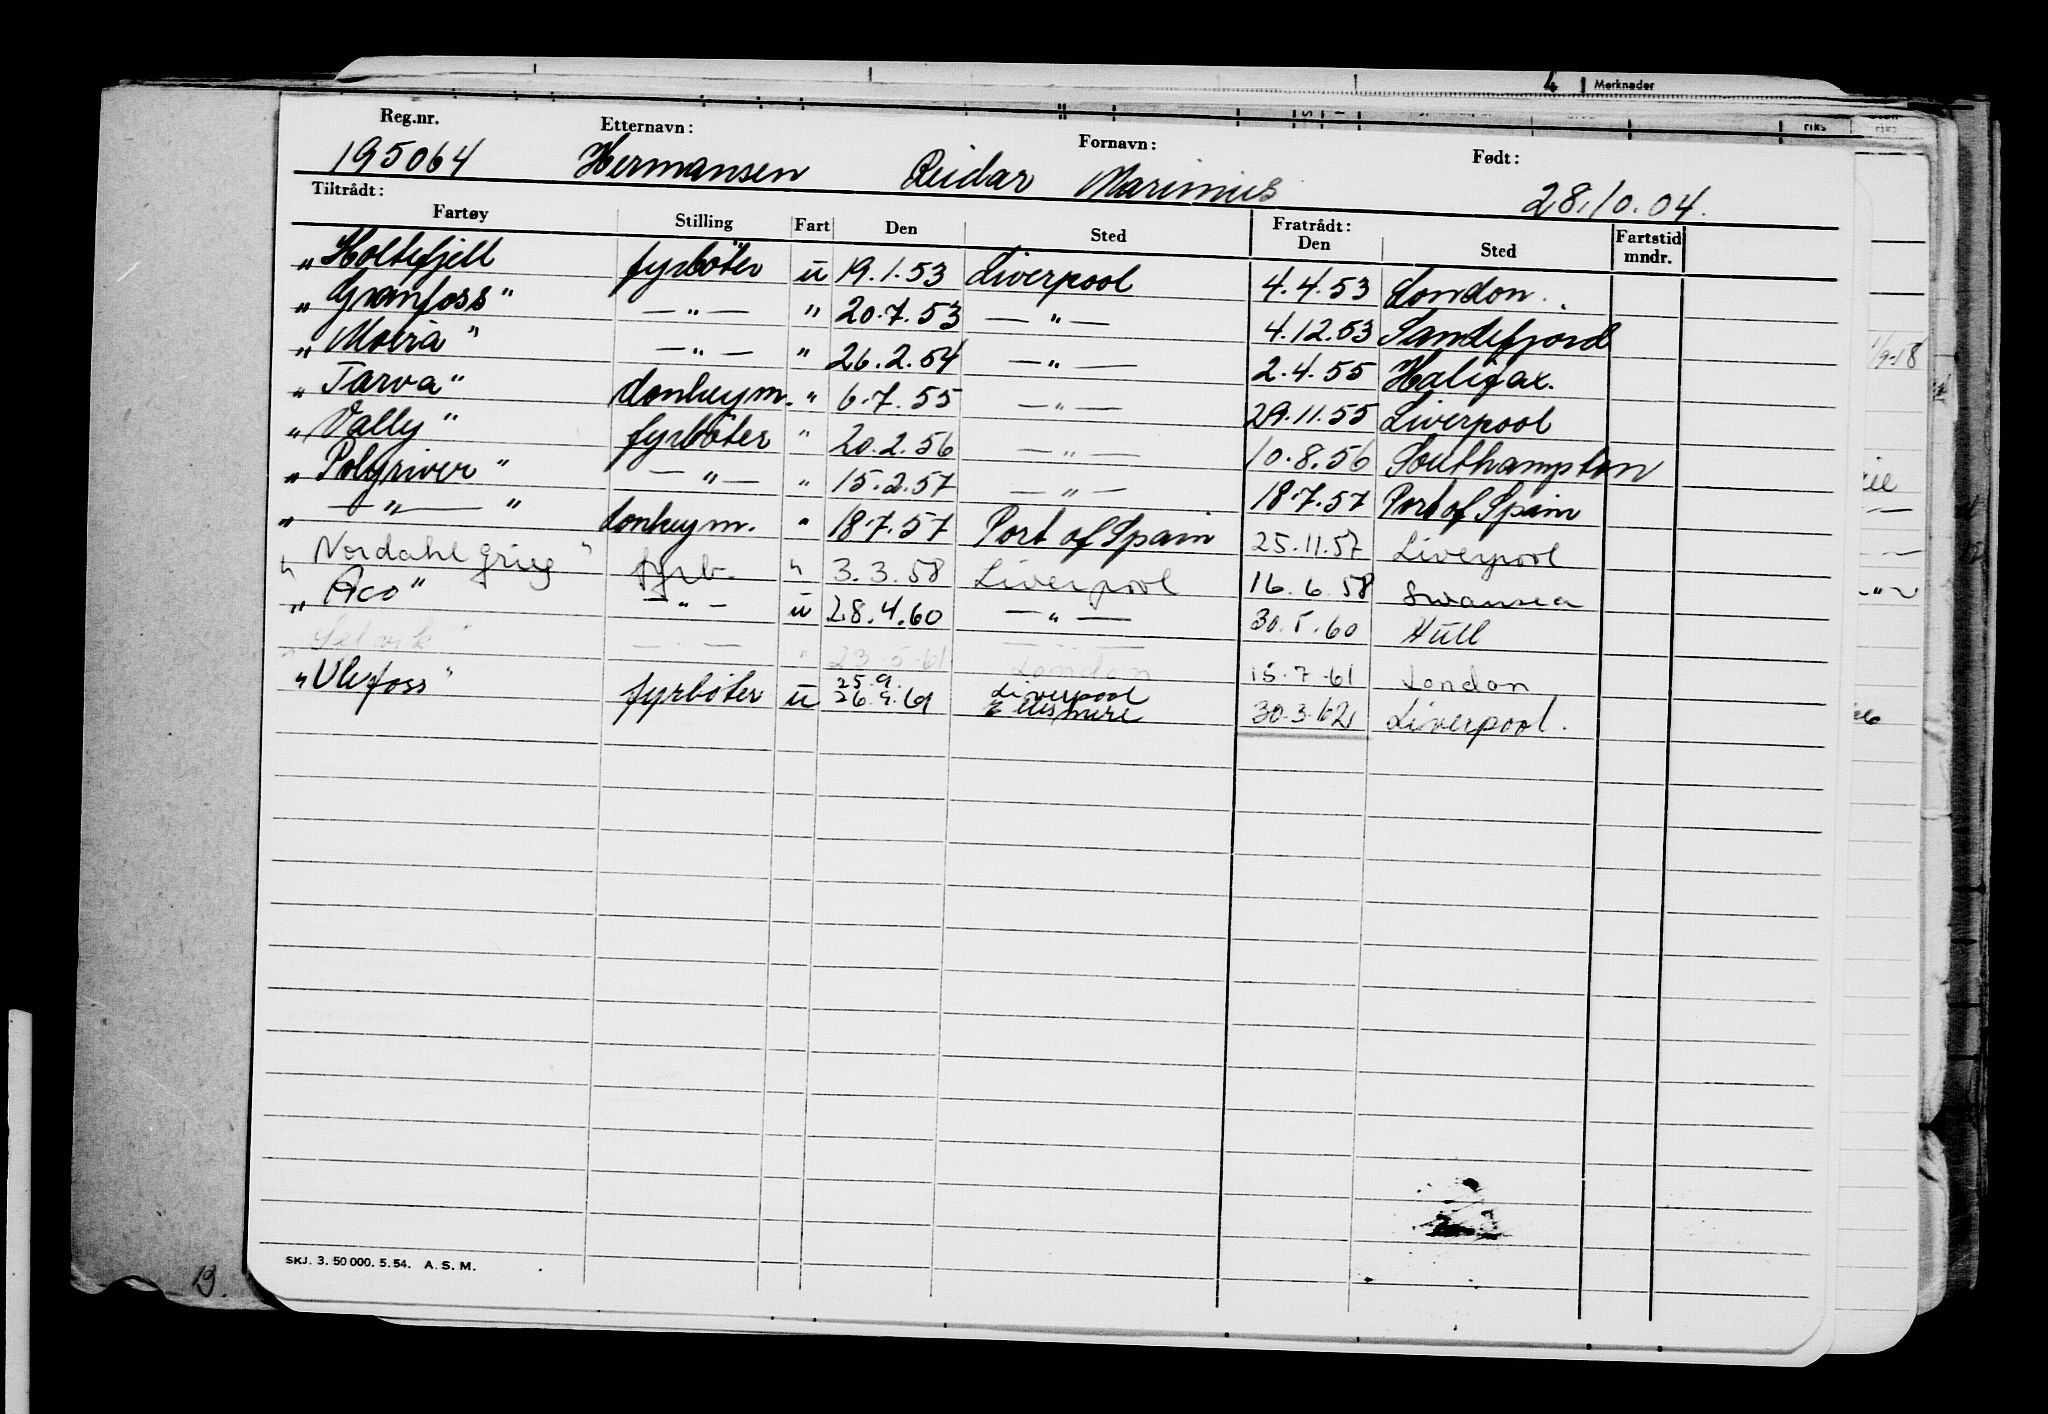 4 Merknader
Reg.nr. Etternavn: Fornavn: Født:
195064 Hermansen Reidar Marinius 28.10.04.
Tiltrådt: Fratrådt:
Fartøy Stilling Fart Den Sted Den Sted Fartstid mndr.
„Holtefjell fyrbøter u 19.1.53 Liverpool 4.4.53 London.
„Granfoss" —"— " 20.7.53 —"— 4.12.53 Sandefjord
„Moira" —"— " 26.2.54 —"— 2.4.55 Halifax.
„Tarva" donkeym. " 6.7.55 —"— 29.11.55 Liverpool
„Vally" fyrbøter " 20.2.56 —"— 10.8.56 Southampton
„Polyriver" —"— " 15.2.57 —"— 18.7.57 Port of Spain
„—"—" donkeym. " 18.7.57 Port of Spain 25.11.57 Liverpool
„Nordahl Grieg" fyrb. " 3.3.58 Liverpool 16.6.58 Swansea
„Aco" —"— u 28.4.60 —"— 30.5.60 Hull
„Selvik" —"— " 23.5.61 London 15.7.61 London
„Ulefoss" fyrbøter u 25.9. 26.9.61 Liverpool Ellesmere 30.3.62 Liverpool.
SKJ. 3. 50 000. 5. 54. A. S. M.
13.